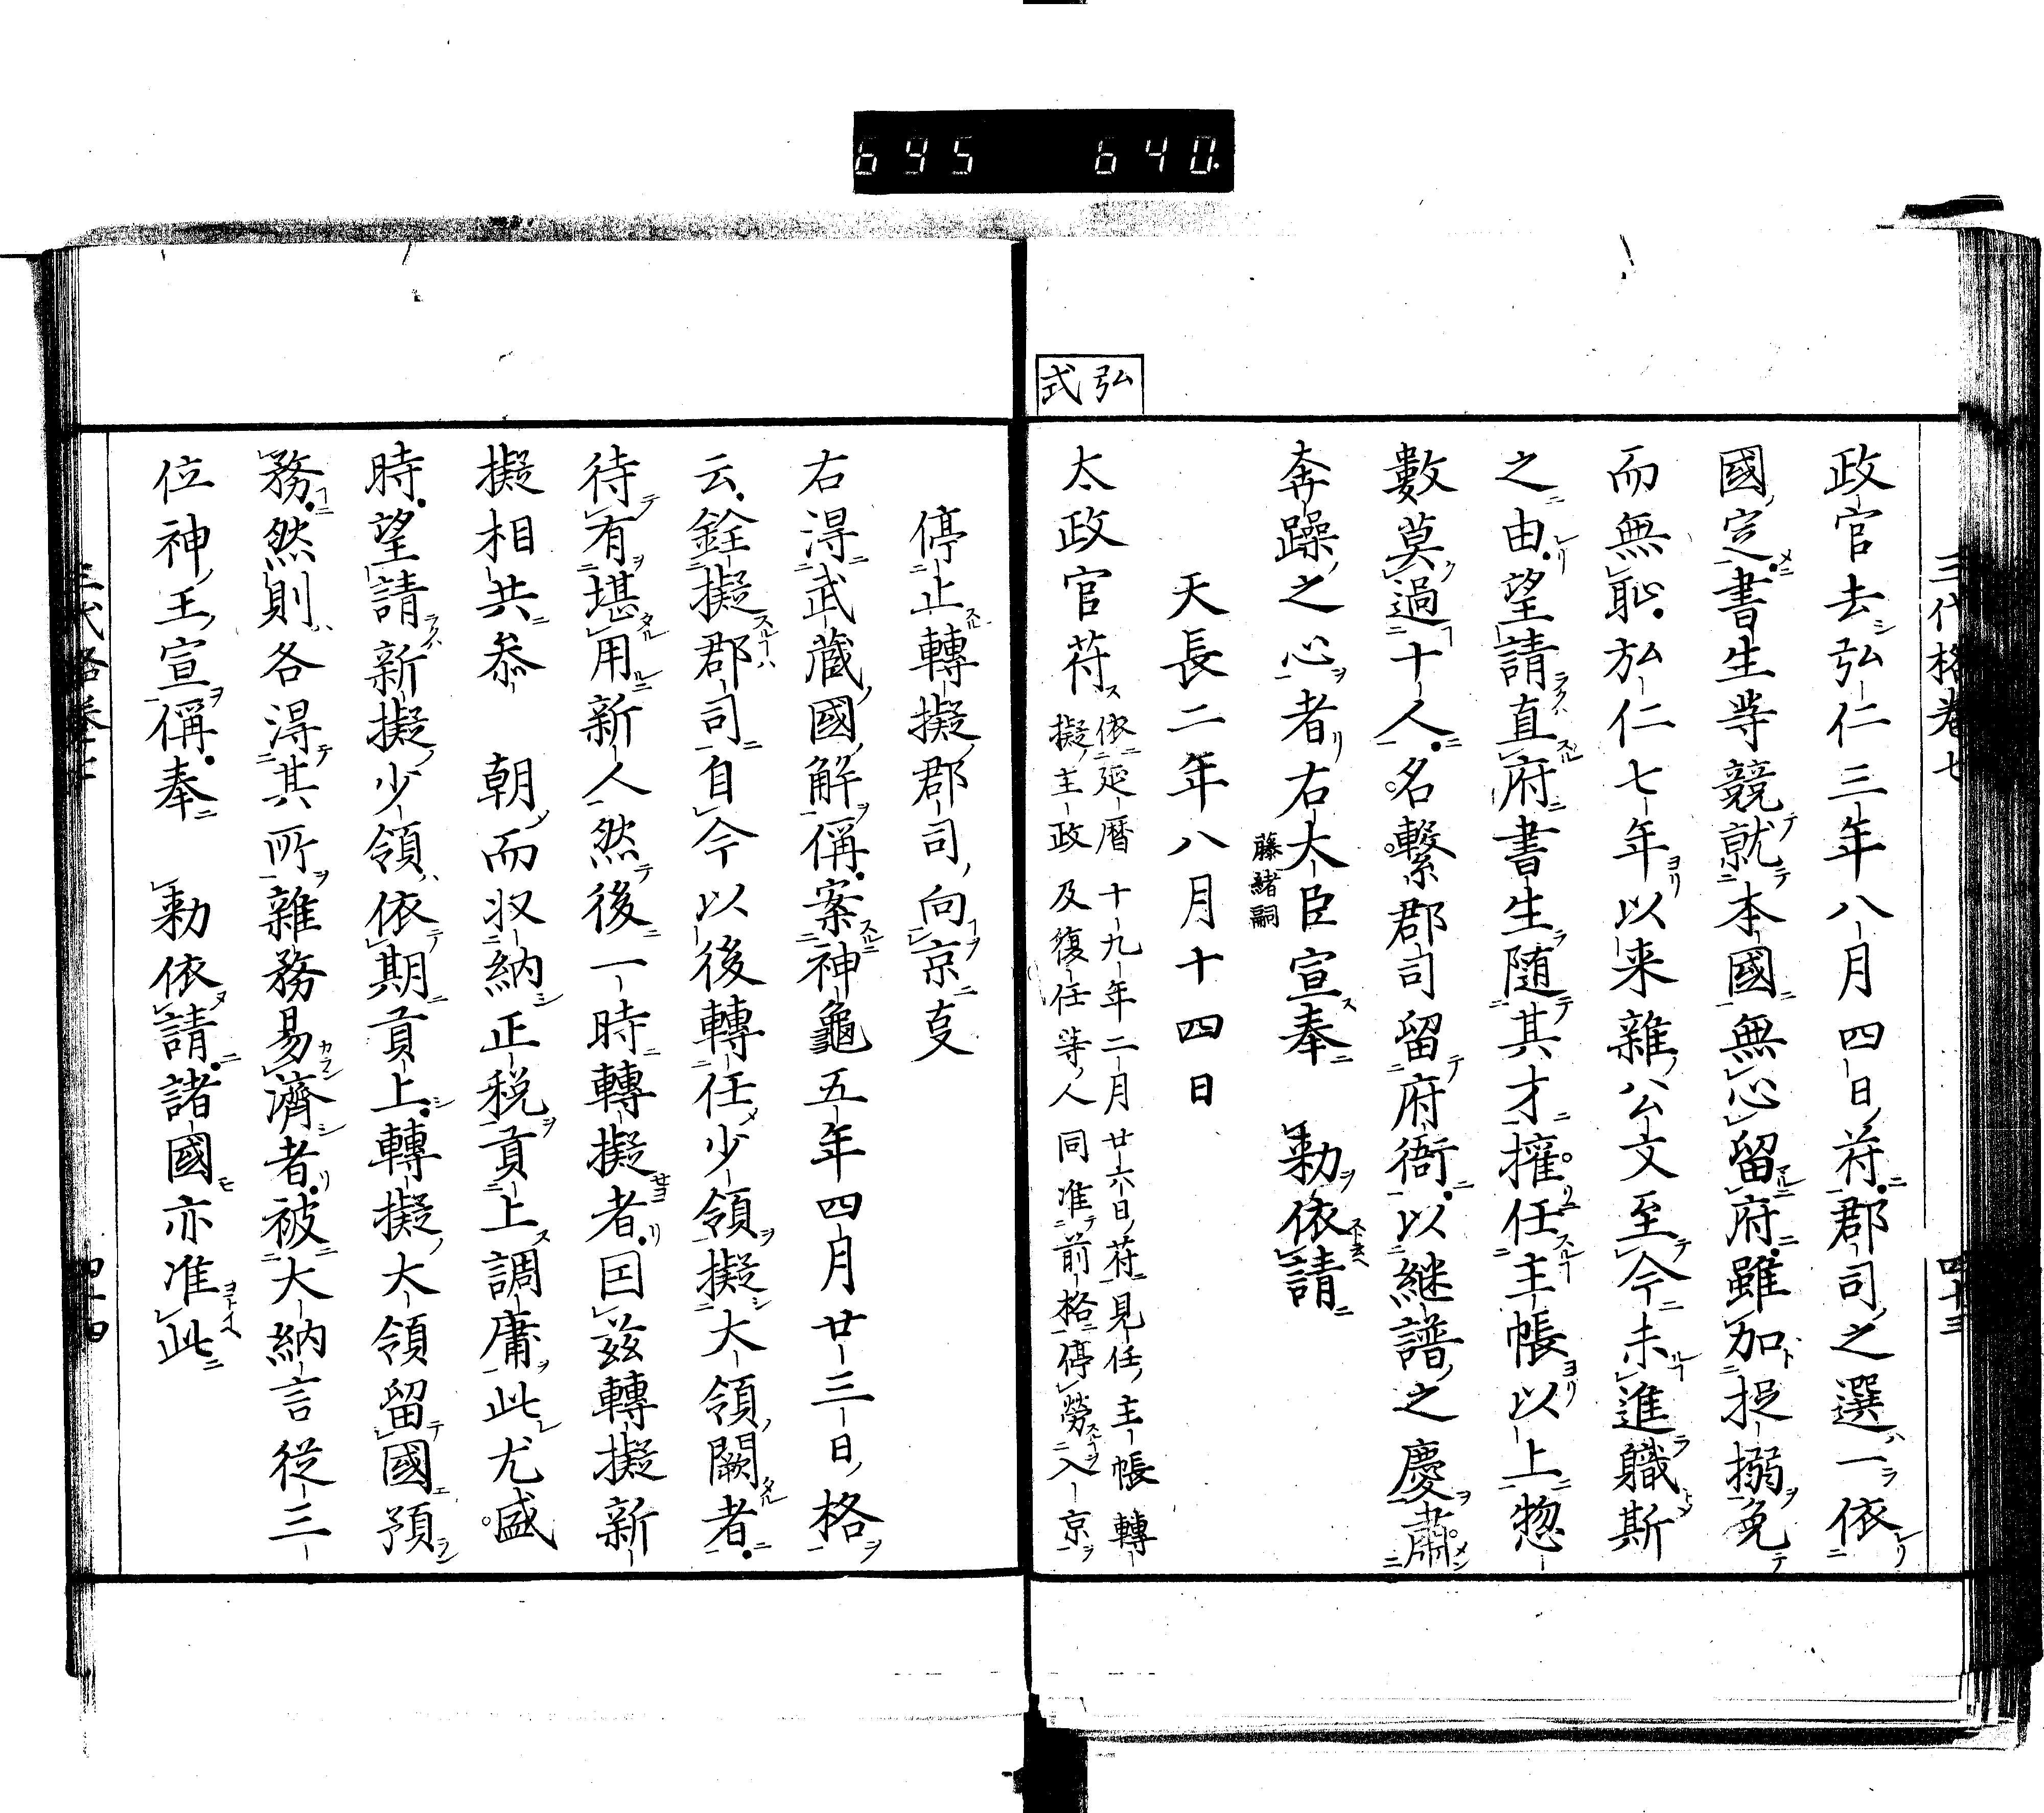 695 640
三代格卷七 四十三
政官去弘仁三年八月四日符郡司之選一依
國定書生等競就本國無心留府雖加捉搦免
而無恥弘仁七年以来雜公文至今未進職斯
之由望請直府書生随其才擢任主帳以上惣
數莫過十人名繫郡司留府衙以継譜之慶肅
奔躁之心者右大臣宣奉 勅依請
藤緒嗣
天長二年八月十四日
弘式
太政官符
依延暦十九年二月廿六日符見任主帳轉
擬主政及復任等人同准前格停勞入京
停止轉擬郡司向京叓
右得武蔵國解稱案神龜五年四月廿三日格
云銓擬郡司自今以後轉任少領擬大領闕者
待有堪用新人然後一時轉擬者因茲轉擬新
擬相共叅 朝而収納正税貢上調庸此尤盛
時望請新擬少領依期貢上轉擬大領留國預
務然則各得其所雜務易濟者被大納言從三
位神王宣稱奉 勅依請諸國亦准此
三代格卷七 四十四